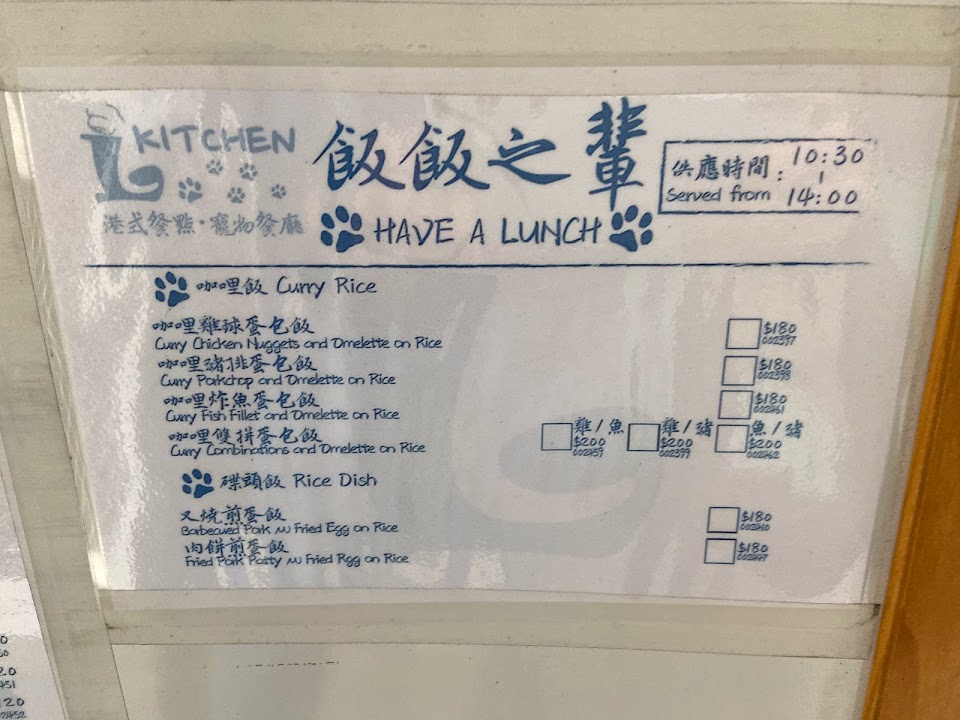 L KITCHEN
港式餐點·寵物餐廳
飯飯之輩
HAVE A LUNCH
供應時間:
Served from
10:30
|
14:00
咖哩飯 Curry Rice
咖哩雞球蛋包飯
Curry Chicken Nuggets and Omelette on Rice
$180
002397
咖哩豬排蛋包飯
Curry Porkchop and Omelette on Rice
$180
002398
咖哩炸魚蛋包飯
Curry Fish Fillet and Omelette on Rice
$180
002461
咖哩雙拼蛋包飯
Curry Combinations and Omelette on Rice
雞/魚
$200
002459
雞/豬
$200
002399
魚/豬
$200
002462
碟頭飯 Rice Dish
叉燒煎蛋飯
Barbecued Pork w Fried Egg on Rice
$180
肉餅煎蛋飯
Fried Pork Patty w Fried Rgg on Rice
$180